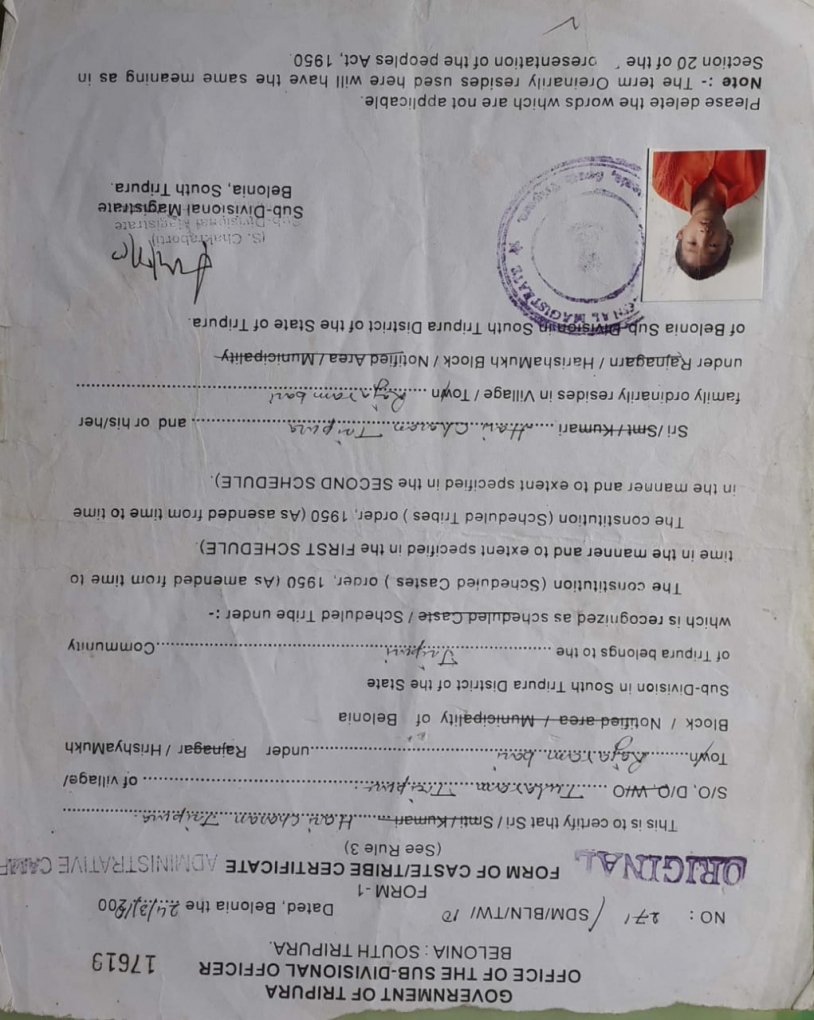 GOVERNMENT OF TRIPURA
OFFICE OF THE SUB-DIVISIONAL OFFICER
BELONIA : SOUTH TRIPURA.
17619
NO : 271 / SDM/BLN/TW/ 10 Dated, Belonia, the 24/3/200
FORM - 1
ORIGINAL FORM OF CASTE/TRIBE CERTIFICATE ADMINISTRATIVE CAMP
(See Rule 3)
This is to certify that Sri / Smti / Kumari Hari Charan Tripura
S/O, D/O, W/O Tularam Tripura of village/
Town Rajaram bari under Rajnagar / HrishyaMukh
Block / Notified area / Municipality of Belonia
Sub-Division in South Tripura District of the State
of Tripura belongs to the Tripuri Community
which is recognized as scheduled Caste / Scheduled Tribe under :-
The constitution (Scheduled Castes ) order, 1950 (As amended from time to
time in the manner and to extent specified in the FIRST SCHEDULE).
The constitution (Scheduled Tribes ) order, 1950 (As asended from time to time
in the manner and to extent specified in the SECOND SCHEDULE).
Sri /Smt / Kumari Hari Charan Tripura and or his/her
family ordinarily resides in Village / Town Rajaram bari
under Rajnagarn / HarishaMukh Block / Notified Area / Municipality
of Belonia Sub-Division in South Tripura District of the State of Tripura.
(S. Chakraborti)
Sub-Divisional Magistrate
Sub-Divisional Magistrate
Belonia, South Tripura.
MAGISTRATE
Please delete the words which are not applicable.
Note :- The term Oreinarily resides used here will have the same meaning as in
Section 20 of the presentation of the peoples Act, 1950.